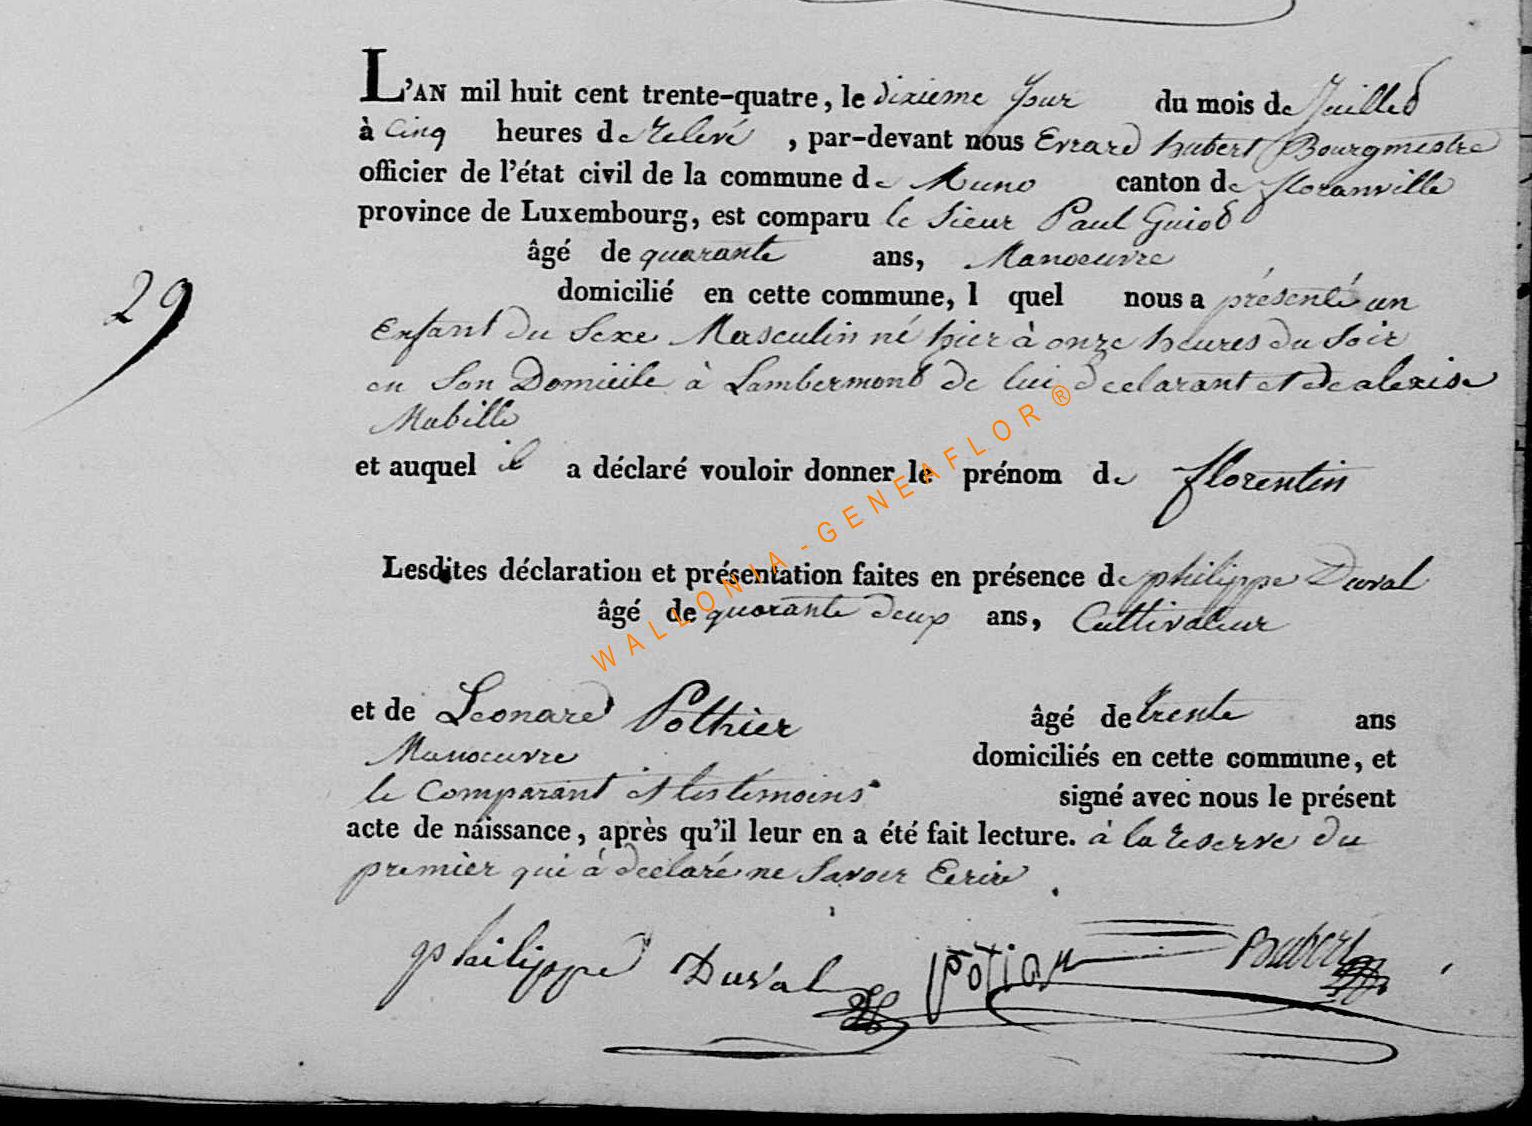 L'AN mil huit cent trente-quatre, le dixieme Jour du mois de Juillet
à Cinq heures de relevé, par-devant nous Evrard hubert Bourgmestre
officier de l'état civil de la commune de Muno canton de floranville
province de Luxembourg, est comparu le Sieur Paul Guiot
âgé de quarante ans, Manoeuvre
domicilié en cette commune, l quel nous a présenté un
29
Enfant du Sexe Masculin né hier à onze heures du Soir
en Son Domicile à Lambermont de lui declarant et de alexise
Mabille
et auquel il a déclaré vouloir donner le prénom de florentin
WALLONIA-GENEAFLOR®
Lesdites déclaration et présentation faites en présence de philippe Duval
âgé de quarante deux ans, Cultivateur
et de Leonard Pothier âgé de trente ans
Manoeuvre domiciliés en cette commune, et
le Comparant et les témoins signé avec nous le présent
acte de naissance, après qu'il leur en a été fait lecture. à la reserve du
premier qui à declaré ne Savoir Ecrire.
philippe Duval potier Hubert